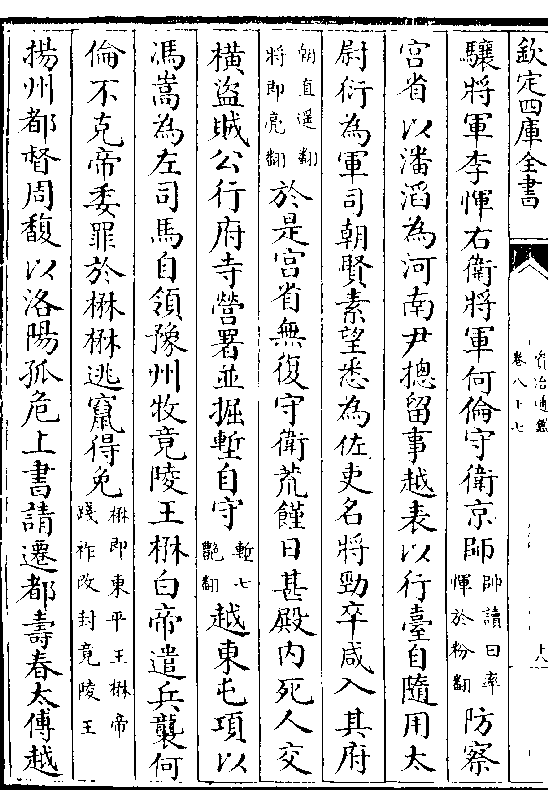 欽定四庫全書
資治通鑑
卷八十七
驤將軍李惲右衛將軍何倫守衛京師帥讀曰率惲於粉翻防察
宮省以潘滔為河南尹摠留事越表以行臺自隨用太
尉衍為軍司朝賢素望悉為佐吏名將勁卒咸入其府
朝直遥翻將即亮翻於是宮省無復守衛荒饉日甚殿内死人交
橫盗賊公行府寺營署並掘塹自守塹七艷翻越東屯項以
馮嵩為左司馬自領豫州牧竟陵王楙白帝遣兵襲何
倫不克帝委罪於楙楙逃竄得免楙即東平王楙帝踐祚改封竟陵王
揚州都督周馥以洛陽孤危上書請遷都壽春太傅越